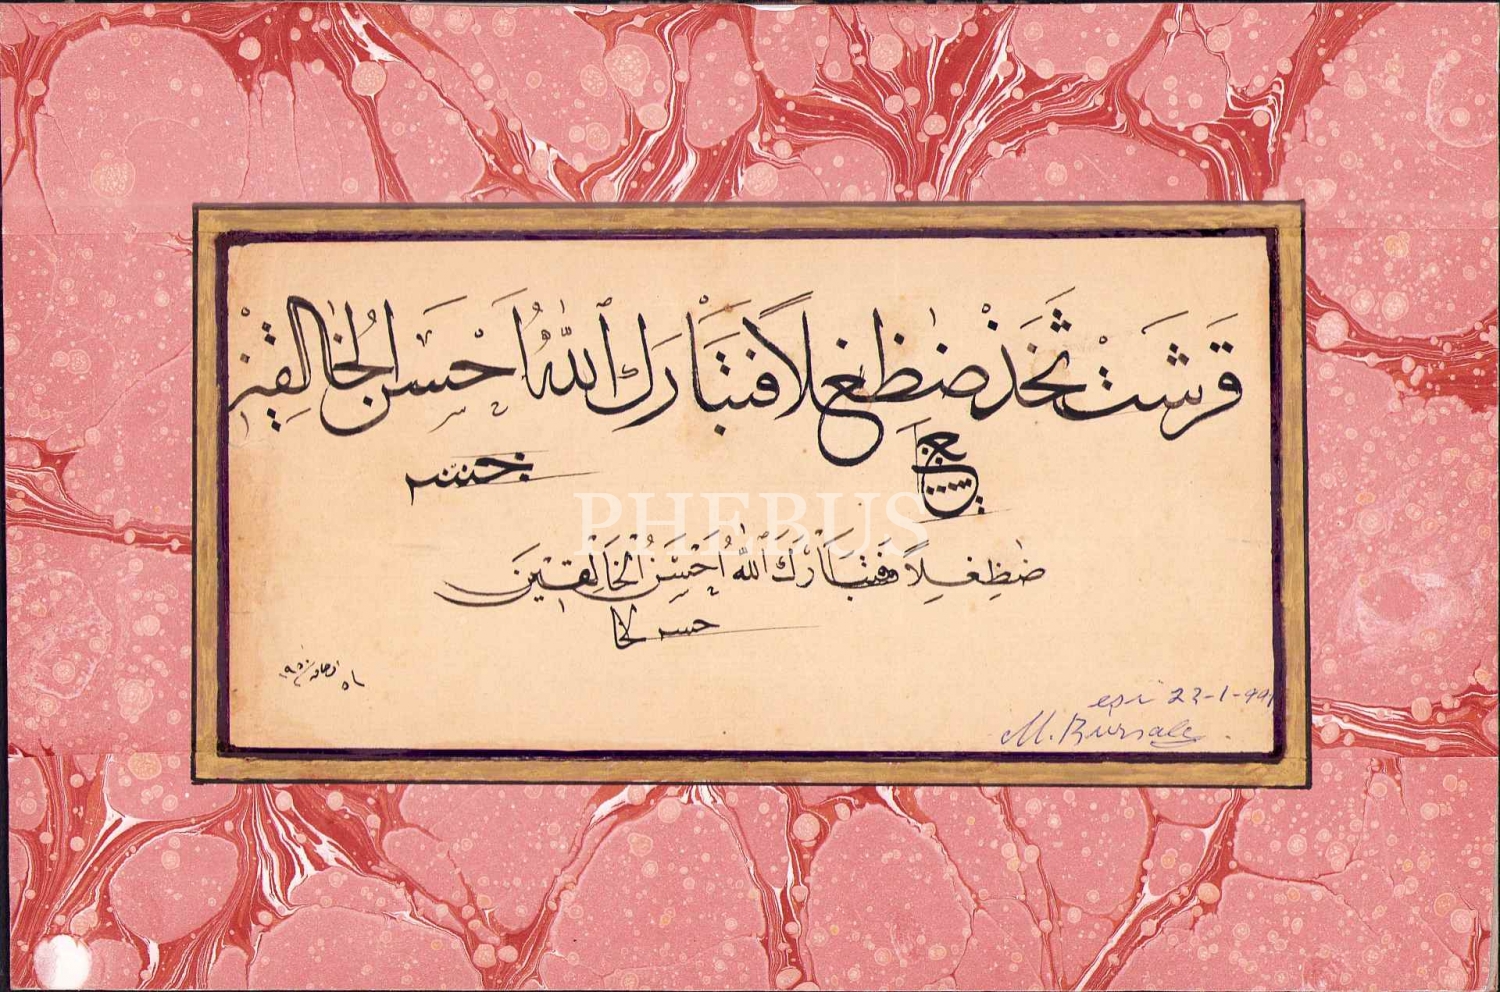 قَرَشَتْ ثَخَذْ ضَظَغْلًا فَتَبَارَكَ اللّٰهُ اَحْسَنُ الْخَالِقِينَ
PHEBUS
ضَظِغلاً فَتَبَارَكَ اللّٰهُ اَحْسَنُ الْخَالِقِينَ
حسن لخا
22-1-991
M. Bursalı